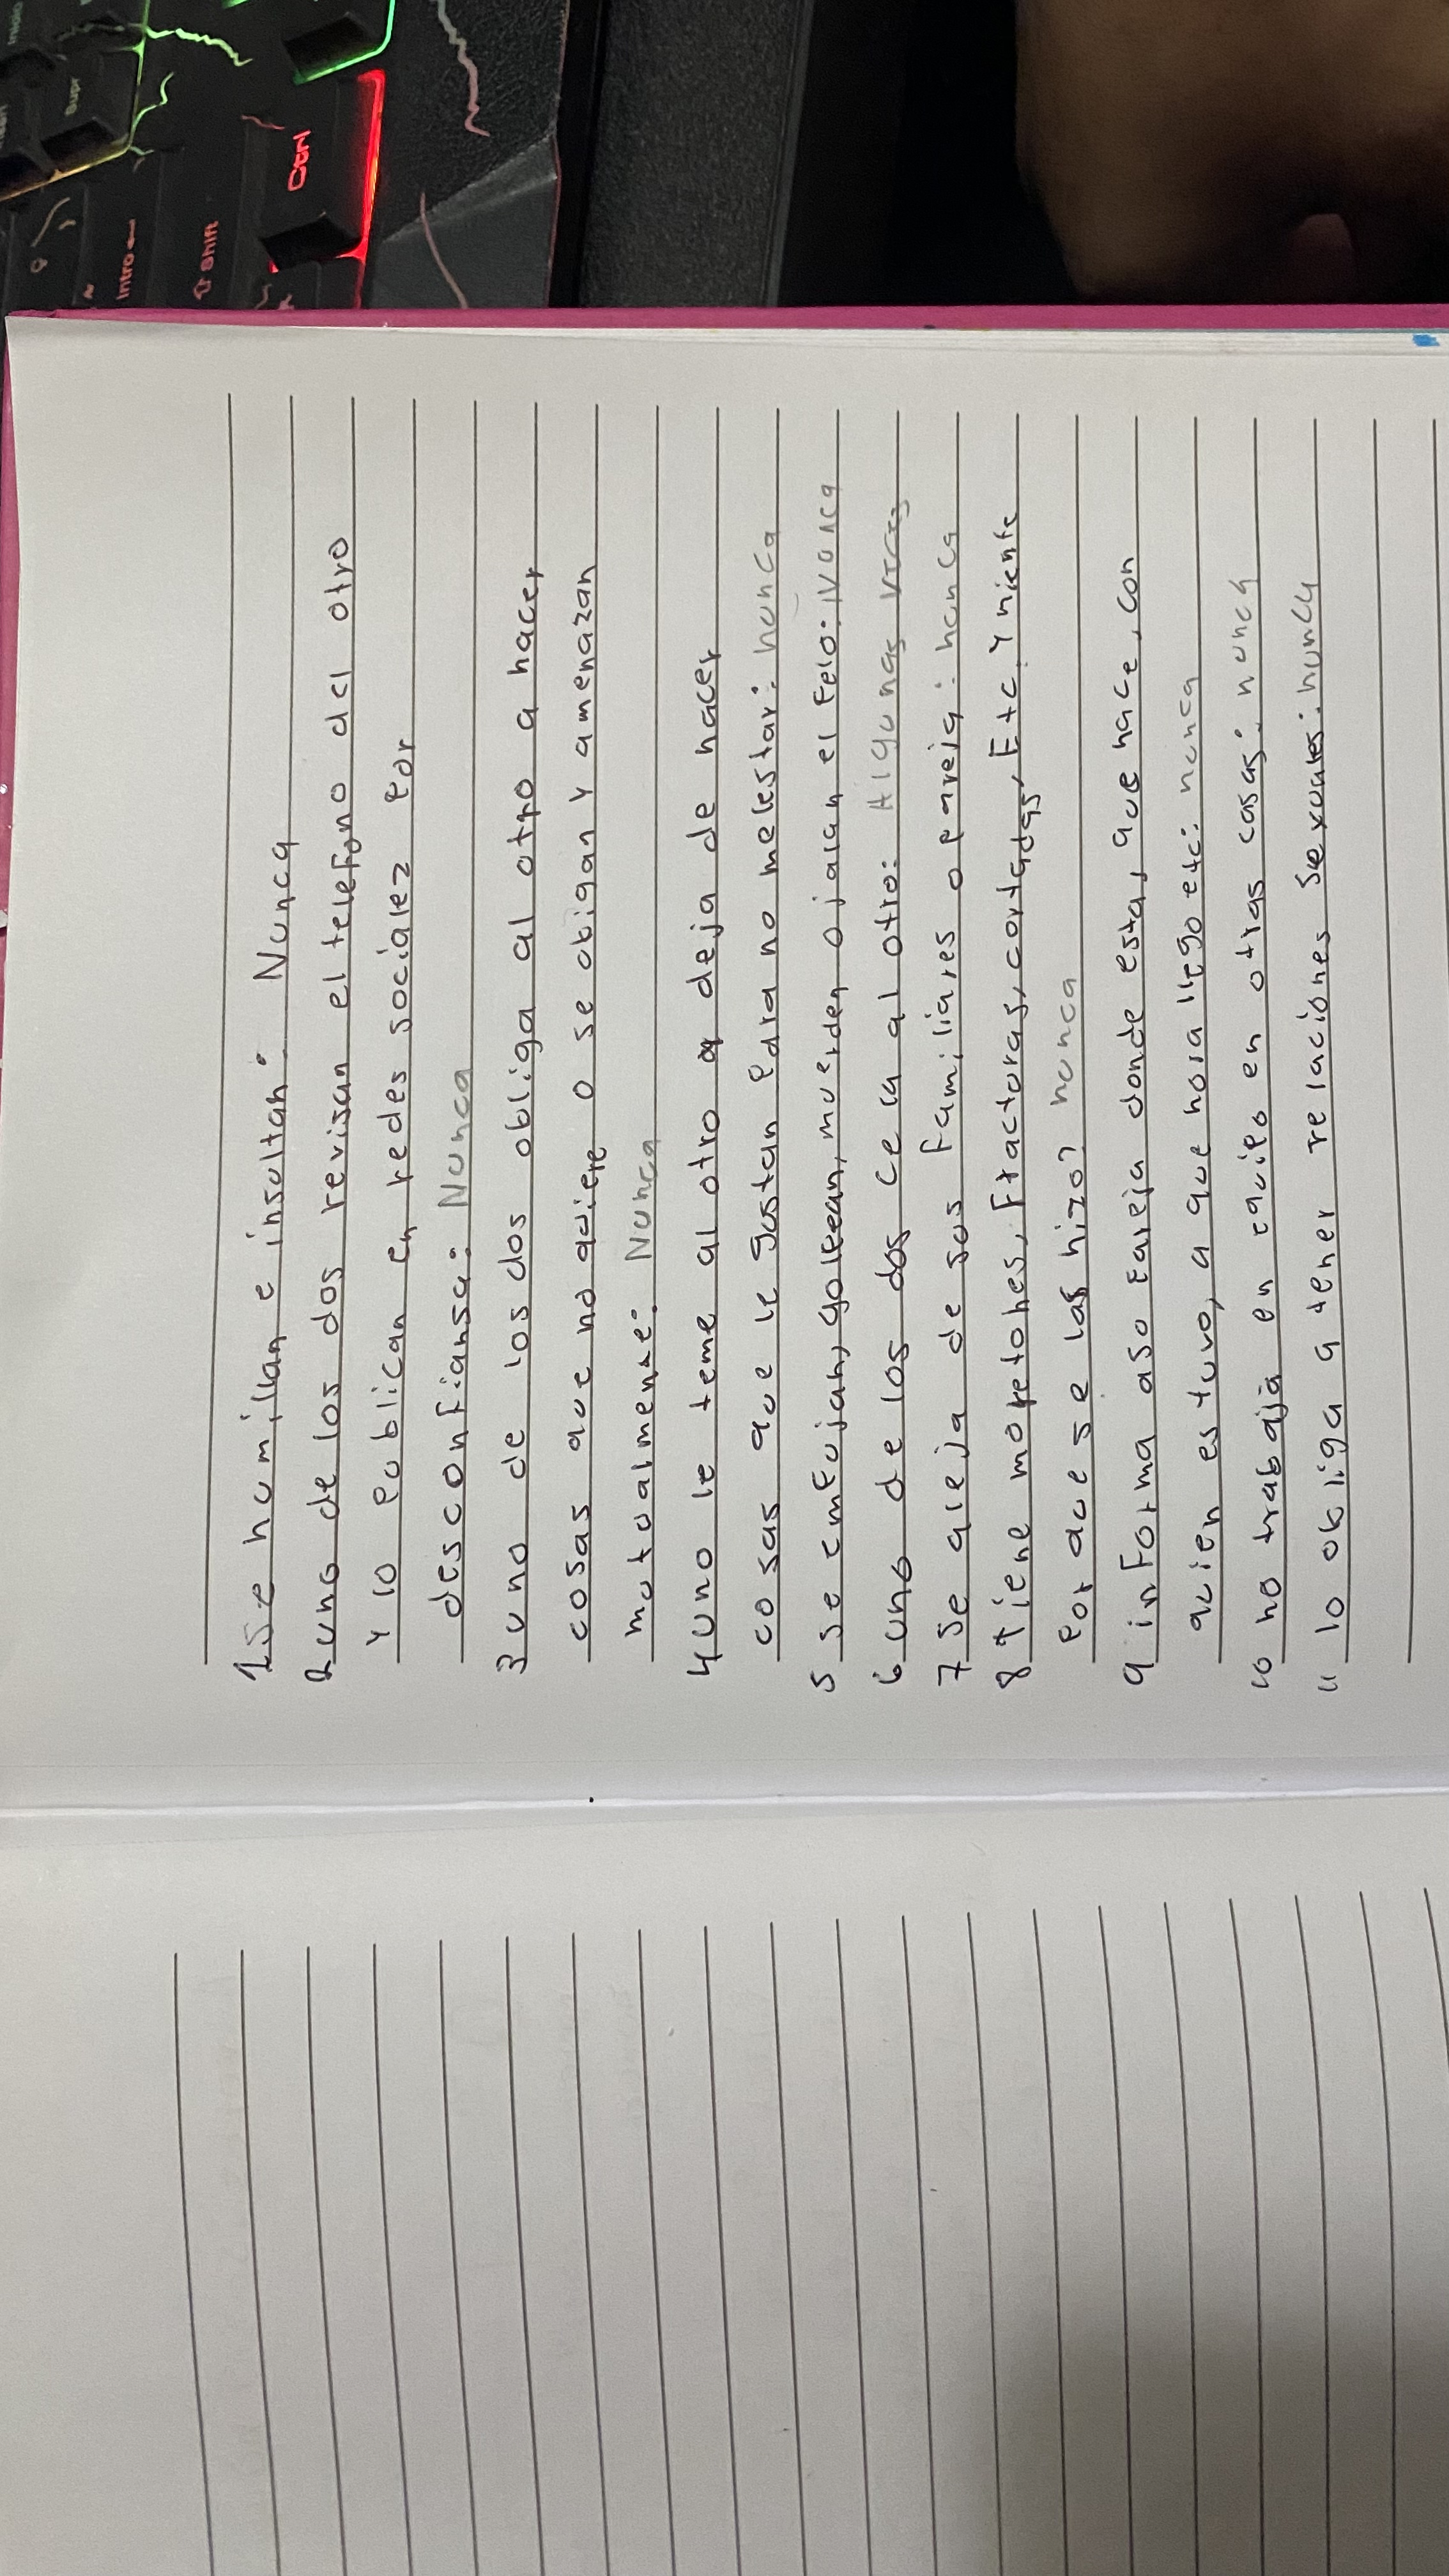 1 Se humillan e insultan: Nunca
2 uno de los dos revisan el telefono del otro
Y lo publican en redes socialez por
desconfiansa: Nunca
3 uno de los dos obliga al otro a hacer
cosas que no quiere o se obigan Y amenazan
mutualmente: Nunca
4 uno le teme al otro a deja de hacer
cosas que le gustan para no melestar: nunca
5 se empujan, golpean, muerden o jalan el pelo: Nunca
6 uno de los dos cela al otro: Algunas veces
7 Se aleja de sus familiares o pareja: nunca
8 tiene moretones, Fracturas, cortadas, Etc. Y miente
por que se las hizo? nunca
9 informa aso pareja donde esta, que hace, con
quien estuvo, a que hora llego etc: nunca
10 no trabaja en equipo en otras casas: nunca
11 lo obliga a tener relaciones sexuales: nunca
Ctrl
Shift
Intro
Supr
Inicio